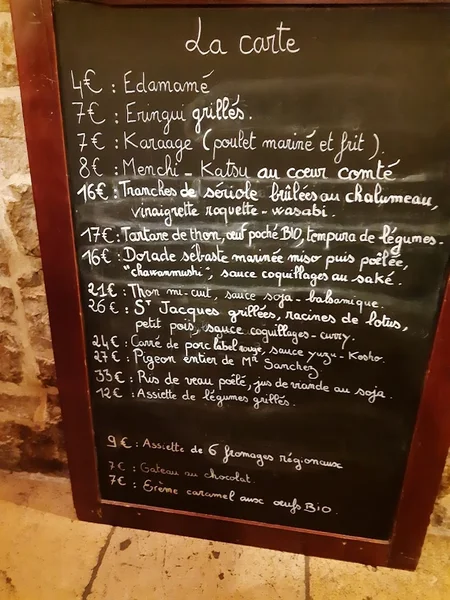 La carte
4€ : Edamamé
7€ : Eringui grillés.
7€ : Karaage (poulet mariné et frit).
8€ : Menchi - Katsu au cœur comté
16€ : Tranches de sériole brûlées au chalumeau,
vinaigrette roquette - wasabi.
17€ : Tartare de thon, œuf poché BIO, tempura de légumes.
16€ : Dorade sébaste marinée miso puis poêlée,
"chawanmushi", sauce coquillages au saké.
21€ : Thon mi-cuit, sauce soja - balsamique.
26€ : St Jacques grillées, racines de lotus,
petit pois, sauce coquillages - curry.
24€ : Carré de porc label rouge, sauce yuzu - Kosho.
27€ : Pigeon entier de Mr Sanchez
33€ : Ris de veau poêlé, jus de viande au soja.
12€ : Assiette de légumes grillés.
9€ : Assiette de 6 fromages régionaux
7€ : Gateau au chocolat.
7€ : Crème caramel aux œufs BIO.